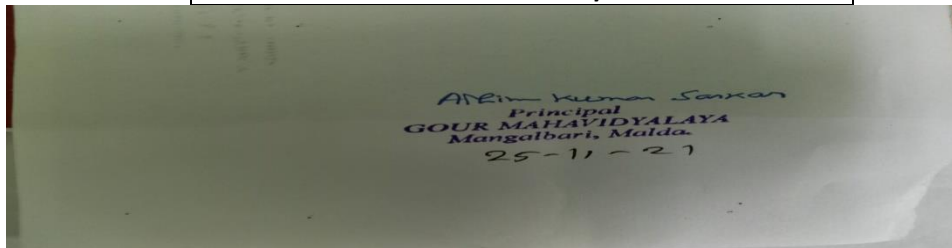 Kumar Sarkar
Principal
GOUR MAHAVIDYALAYA
Mangalbari, Malda.
25-11-21